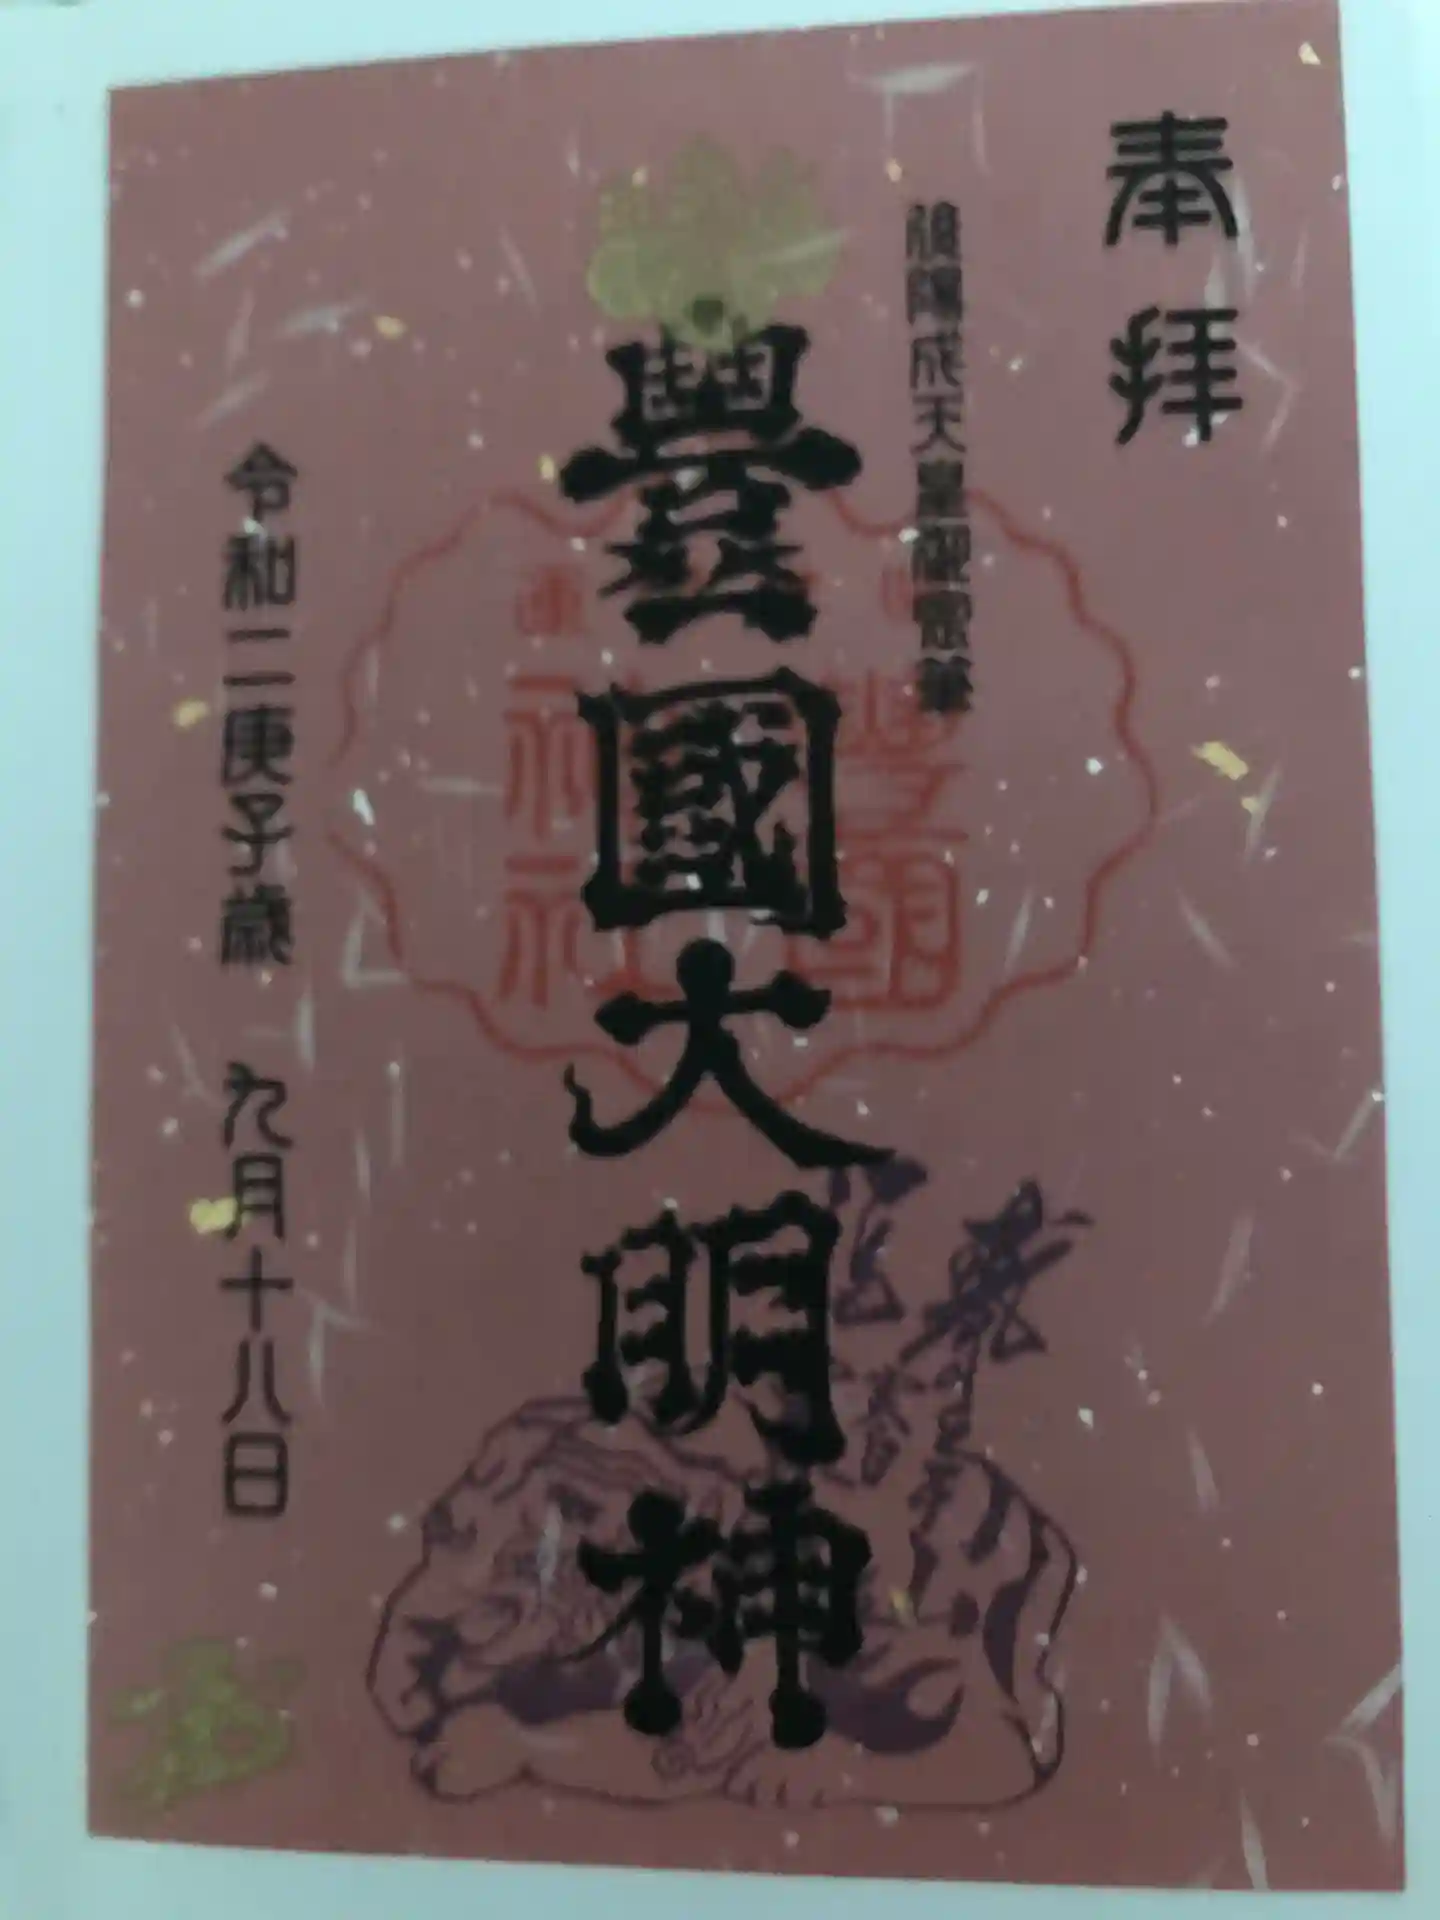 奉拝
後陽成天皇御宸筆
豊國大明神
令和二庚子歳 九月十八日